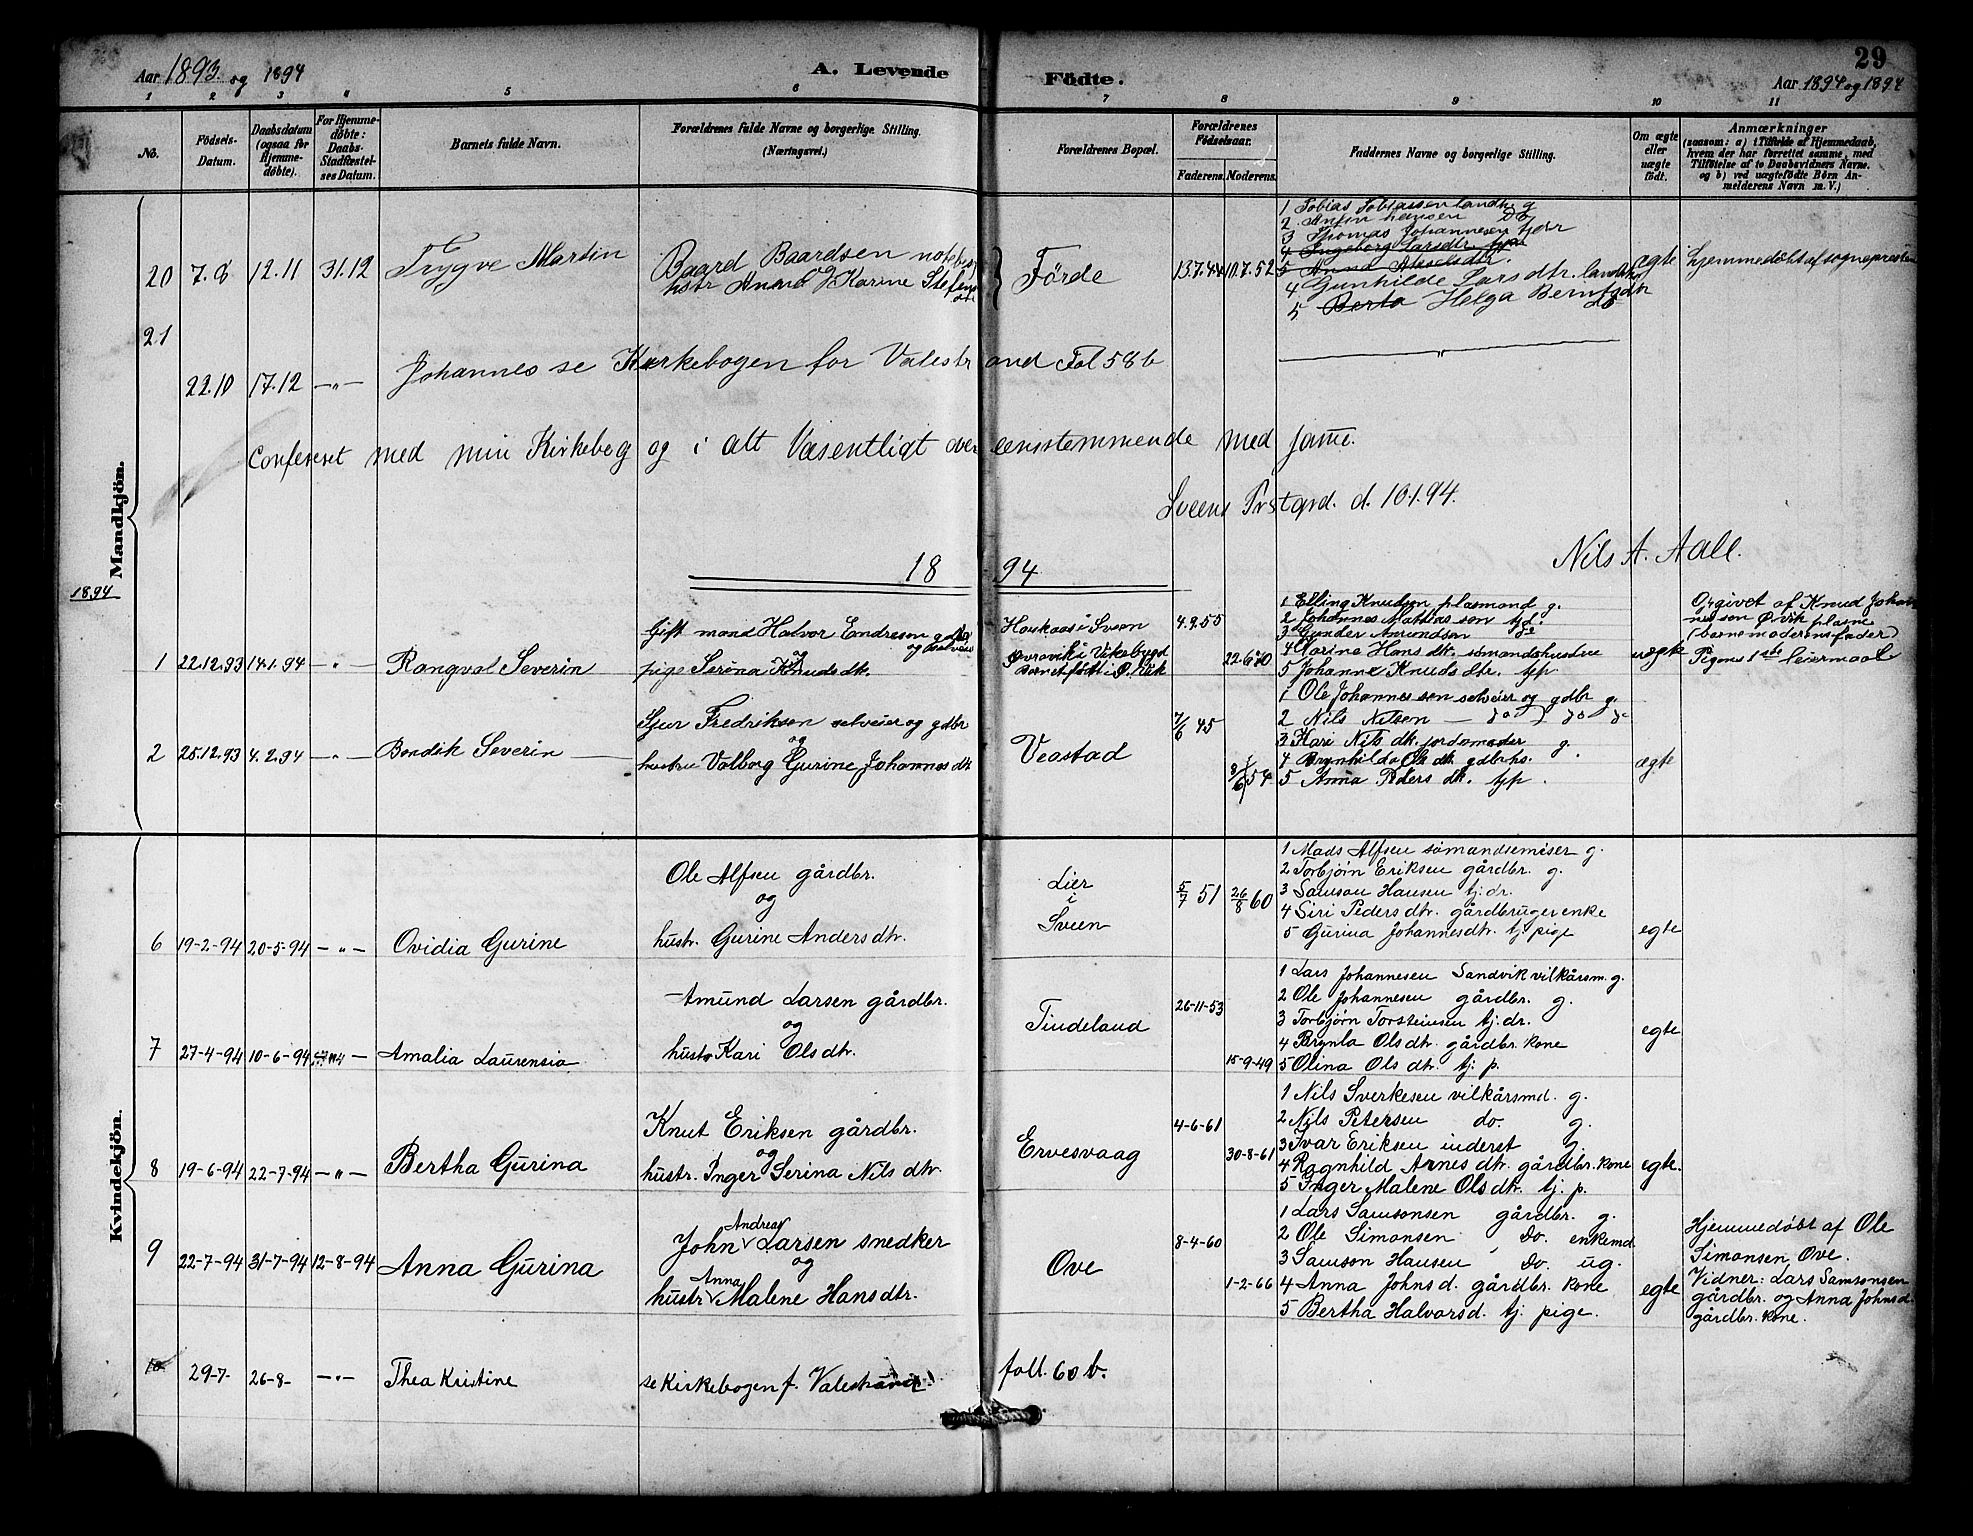 29
Aar 1893 og 1894
A. Levende Födte.
Aar 1894 og 1894
1 2 3 4 5 6 7 8 9 10 11
No.
Födsels-Datum.
Daabsdatum (ogsaa for Hjemme-döbte).
For Hjemme-döbte: Daabs-Stadfæstel-ses Datum.
Barnets fulde Navn.
Forældrenes fulde Navne og borgerlige Stilling.
(Næringsvei.)
Forældrenes Bopæl.
Forældrenes Födselsaar.
Faderens. Moderens.
Faddernes Navne og borgerlige Stilling.
Om ægte eller uægte födt.
Anmærkninger
(saasom: a) i Tilfælde af Hjemmedaab,
hvem der har forrettet samme, med
Tilföielse af to Daabsvidners Navne.
og b) ved uægtefödte Börn An-
melderens Navn m. V.)
Mandkjön.
20 7.8 12.11 31.12 Trygve Martin
Baard Baardsen notebas
og
hstr Anna Karine Stefens
dtr
Förde
13.7.44 10.7.52
1 Tobias Tobiassen landh. g
2 Anfin hansen do
3 Thomas Johannesen tjdr
4 Ingeborg Larsdtr. tjp
5 Anna Akselsdtr.
4 Gunhilde Larsdtr. landh
5 Berta Helga Berntsdtr
do
ægte
hjemmedøbt af sognepresten
21
22.10 17.12 — " — Johannes se Kirkebogen for Valestrand Fol 58 b
Confereret med min Kirkebog og i alt Væsentligt overensstemmende med same.
Sveens Prstgrd. d. 10.1.94.
Nils A. Aall.
1894
1894
1 22.12.93 14.1.94 — " — Rangval Severin
Gift mand Halvor Endreson gdbr
og selveier
og
pige Serina Knudsdtr.
Haukaas i Sveen
Øvrevik i Vikebygd
Barnet født i Ø. Vik
4.9.55
22.6.70
1 Elling Knudsen plasmand g.
2 Johannes Mathias son tjd.
3 Gunder Amundson do
4 Marine Hansdtr. sømandshustru
5 Johanne Knudsdtr. tjp
uægte
Opgivet af Knud Johan
nesson Ø.vik plasme
(barnemoderens fader)
Pigens 1ste leiermaal
2 25.12.93 4.2.94 — " — Bendik Severin
Sjur Fredrikson selveier og gdbr
og
hustru Valborg Gurine Johannesdtr
Veastad
7/6 45
8/6 54
1 Ole Johannesson selveier og gdbr g.
2 Nils Nilsen — do — do do
3 Kari Nils dtr. jordemoder g.
4 Brynhilda Ols dtr. gdbrhs.
5 Anna Peders dtr. tjp.
ægte
Kvindekjön.
6 19-2-94 20-5-94 — " — Ovidia Gurine
Ole Alfsen gårdbr.
og
hustr. Gurine Andersdtr.
Lier
i
Sveen
5/7 51 26/8 60
1 Mads Alfsen sømandsemiser g.
2 Torbjørn Eriksen gårdbr. g.
3 Samson Hansen tj. dr.
4 Siri Pedersdtr. gårdbruger enke
5 Gurina Johannesdtr. tj. pige
egte
7 27-4-94 10-6-94 Amalia Laurensia
Amund Larsen gårdbr.
og
hustr Kari Olsdtr.
Tindeland
26-11-53
15-9-49
1 Lars Johannesen Sandvik vilkårsm. g.
2 Ole Johannesen gårdbr. g.
3 Torbjørn Torsteinsen tj. dr.
4 Brynla Olsdtr. gårdbr. kone
5 Olina Olsdtr. tj. p.
egte
8 19-6-94 22-7-94 — " — Bertha Gurina
Knut Eriksen gårdbr.
og
hustr. Inger Serina Nilsdtr.
Ervesvaag
4-6-61
30-8-61
1 Nils Sverkesen vilkårsmd. g.
2 Nils Petersen do. g.
3 Ivar Eriksen inderst g.
4 Ragnhild Arnesdtr. gårdbr. kone
5 Inger Malene Olsdtr. tj. p.
egte.
9 22-7-94 31-7-94 12-8-94 Anna Gurina
Andreas
John Larsen snedker
og
Anna
hustr Malene Hansdtr.
Ove
8-4-60
1-2-66
1 Lars Samsonsen gårdbr. g.
2 Ole Simonsen Do. enkemd.
3 Samson Hansen Do. ug.
4 Anna Johnsd. gårdbr. kone
5 Bertha Halvorsd. tj. pige.
egte
Hjemmedøbt af Ole
Simonsen, Ove.
Vidner: Lars Samsonsen
gårdbr. og Anna Johnsd.
gårdbr. kone.
10 29-7- 26-8- — " — Thea Kristine se Kirkebogen f. Valestrand foll. 60 b.